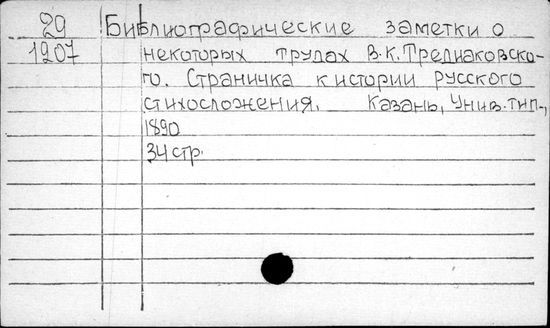 29 Библиографические заметки о
1907 некоторых трудах В.К. Тредиаковско-
го. Страничка к истории русского
стихосложения. Казань, Унив. тип.,
1890
34 стр.